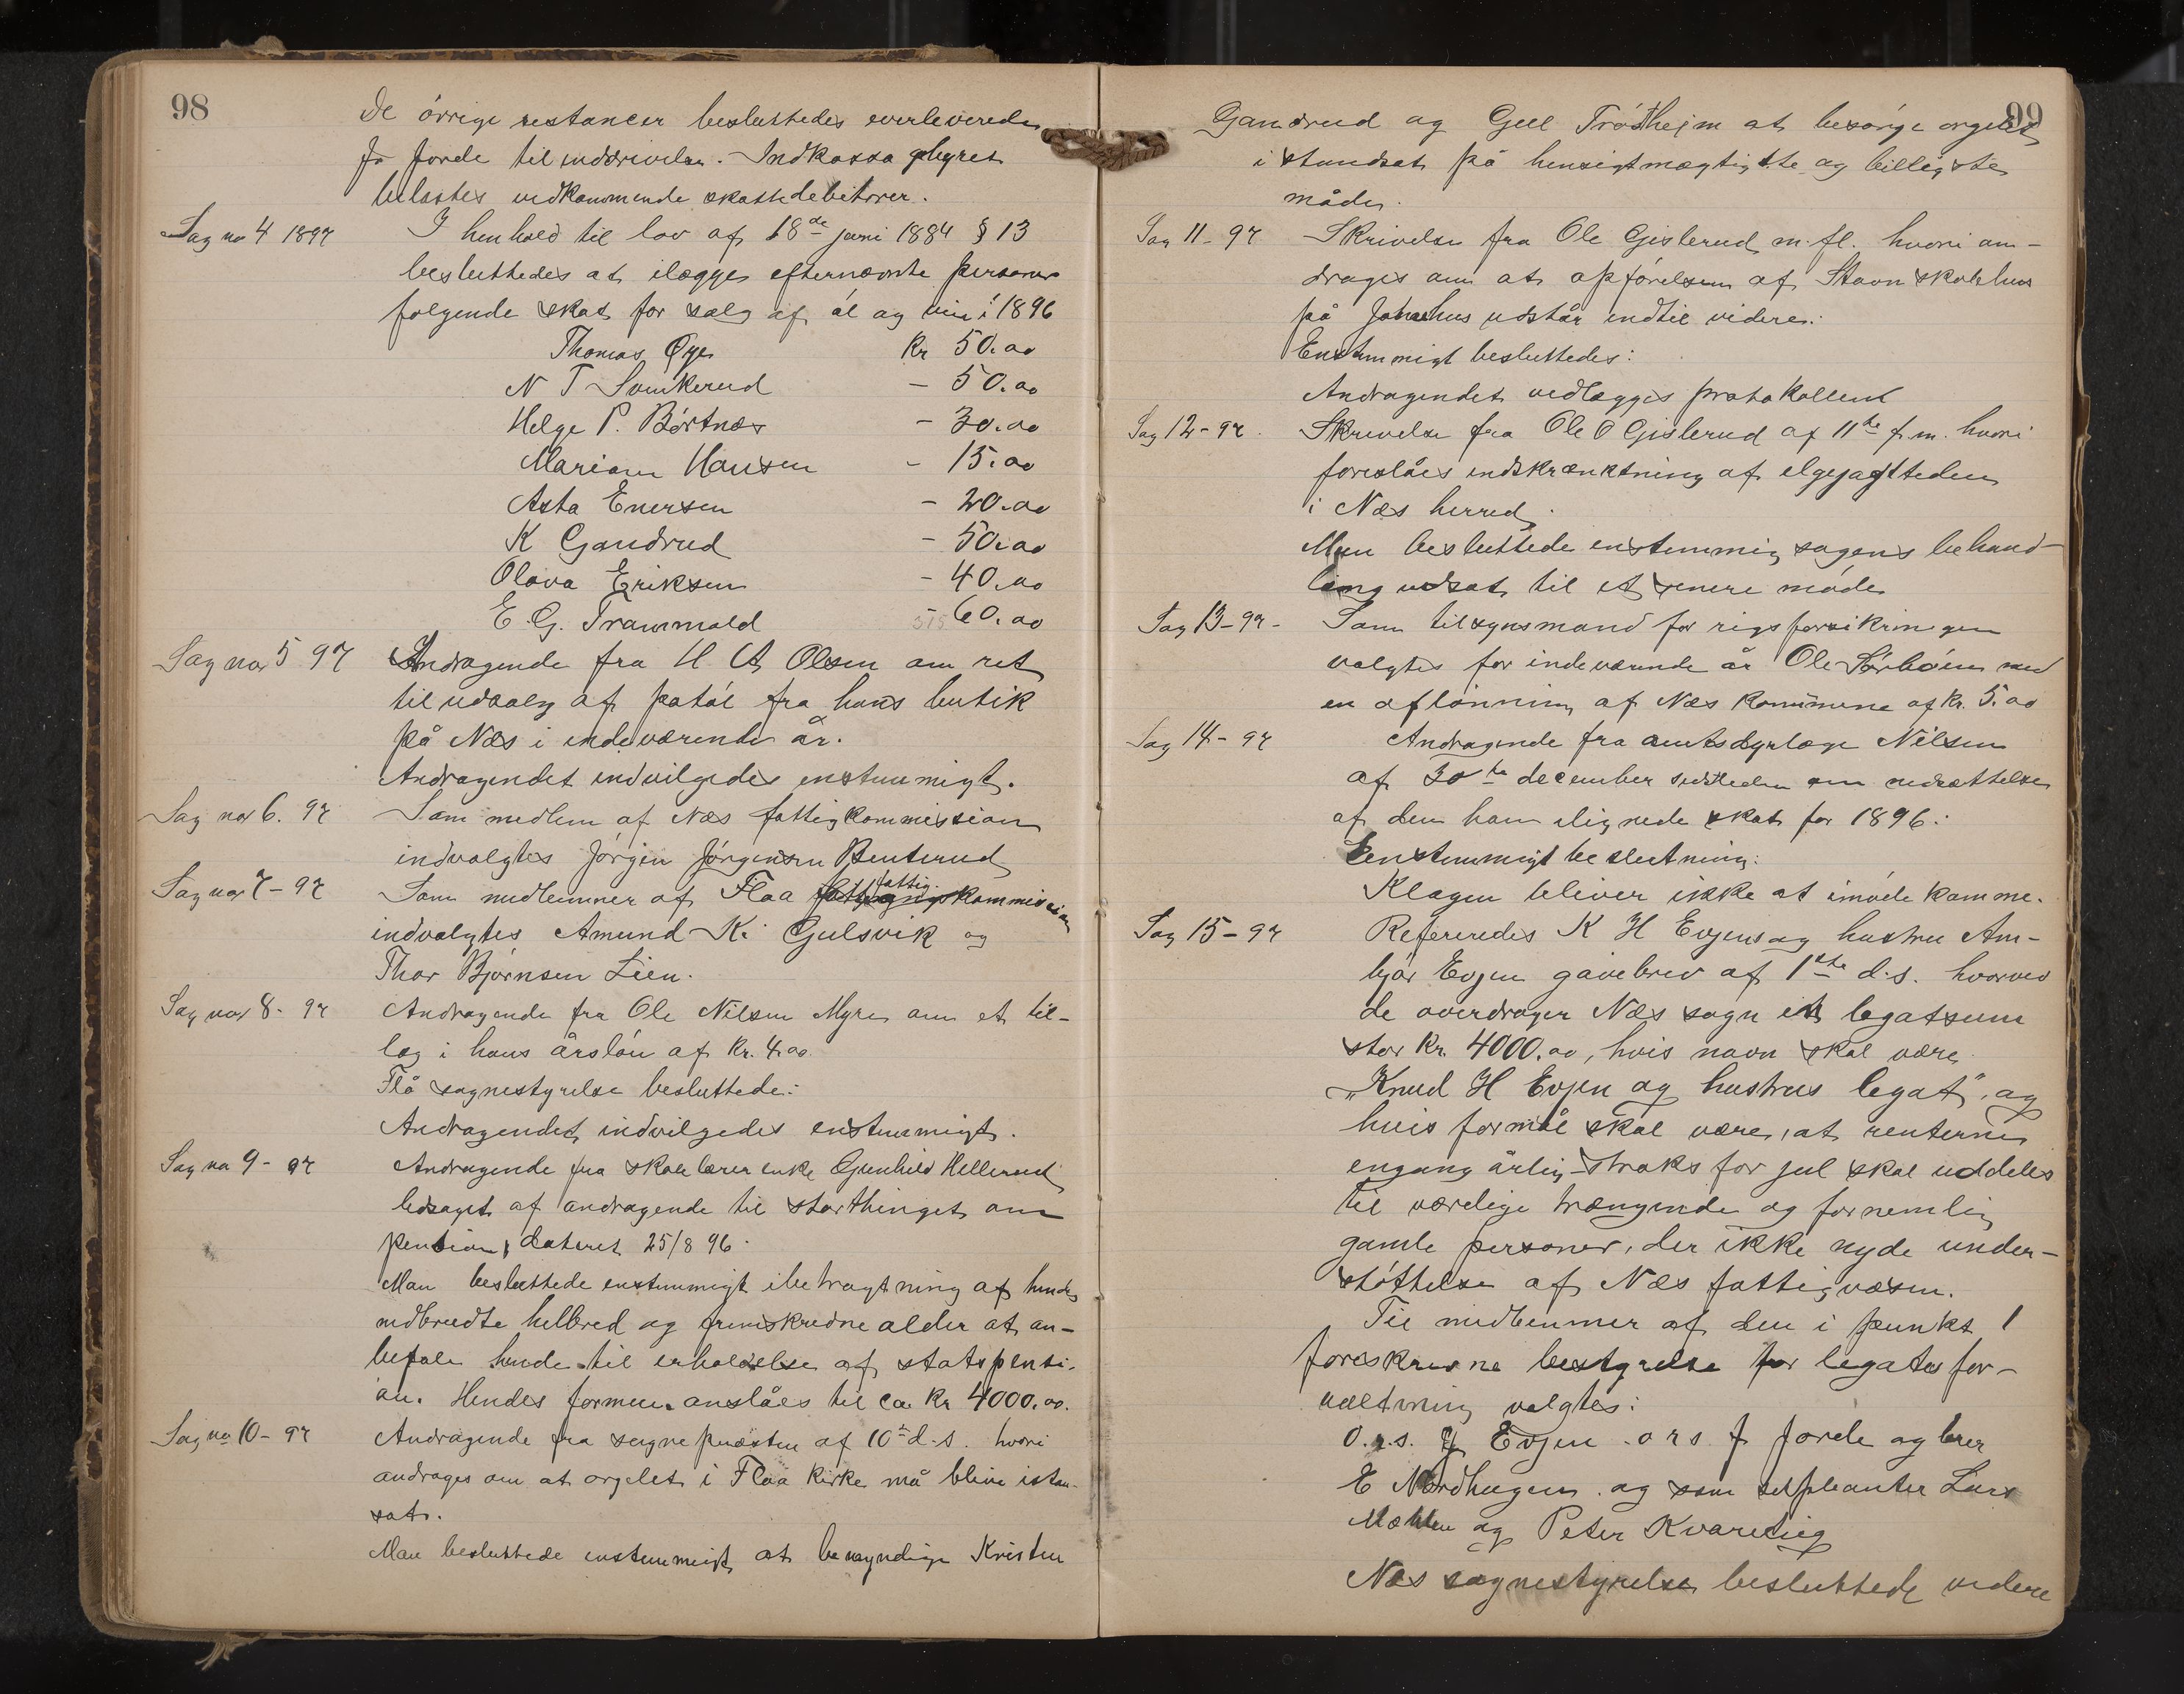 98
De övrige restancer besluttedes overleverede
J. Jorde til inddrivelse. Indkassa gebyret
belastes vedkommende skattedebitorer.
Sag no 4 1897 I henhold til lov af 18de juni 1884 § 13
besluttedes at ilægges efternævnte personer
følgende skat for salg af øl og vin i 1896
Thomas Øye Kr 50.00
N T Svenkerud - 50.00
Helge P. Børtnæs - 30.00
Mariane Hansen - 15.00
Asta Enersen - 20.00
K Gandrud - 50.00
Olava Eriksen - 40.00
E. G. Tranmæld - 60.00
315
Sag no 5 97 Andragende fra H A Olsen om ret
til udsalg af patøl fra hans butik
på Næs i indeværende år.
Andragendet indvilgedes enstemmigt.
Sag no 6. 97 Som medlem af Næs fattigkommission
indvalgtes Jørgen Jørgensen Benterud
Sag no 7 - 97 Som medlemmer af Flaa fattigkommission
indvalgtes Amund K. Gulsvik og
Thor Bjørnsen Lien.
Sag no 8 - 97 Andragende fra Ole Nilsen Myre om et til-
læg i hans årsløn af Kr. 4.00.
Flå sognestyrelse besluttede:
Andragendet indvilgedes enstemmigt.
Sag no 9 - 97 Andragende fra skolelærer enke Gunhild Hellerud
ledsaget af andragende til storthinget om
pension, dateret 25/8 96.
Man besluttede enstemmigt i betragtning af hendes
nedbrudte helbred og fremskredne alder at an-
befale hende til erholdelse af statspensi-
on. Hendes formue anslåes til ca. Kr 4000.00.
Sag no 10 - 97 Andragende fra sognepræsten af 10de d.s. hvori
andrages om at orgelet i Flaa kirke må blive istan-
sat.
Man besluttede enstemmigt at bemyndige Kristen
99
Gandrud og Gul Trøstheim at besørge orgelet
istandsat på hensigtmægtigste og billigste
måde.
Sag 11 - 97 Skrivelse fra Ole Gislerud m.fl. hvori an-
drages om at opførelsen af Stavn skolehus
på udstår indtil videre.
Enstemmigt besluttedes:
Andragendet vedlægges protokollen
Sag 12 - 97. Skrivelse fra Ole O Gislerud af 11te f.m. hvori
foreslåes indskrænktning af elgejagttiden
i Næs herred.
Man besluttede enstemmig sagens behand-
ling udsat til et senere møde
Sag 13 - 97 - Som tilsynsmand for rigsforsikringen
valgtes for indeværende år Ole Sørbøen med
en aflønning af Næs kommune af kr. 5.00
Sag 14 - 97 Andragende fra amtsdyrlæge Nilsen
af 30te december sidstleden om nedsættelse
af den ham ilignede skat for 1896.
Eenstemmigt beslutning:
Klagen bliver ikke at imødekomme.
Sag 15 - 97 Refereredes K H Evjens og hustru Am-
bjør Evjen gavebrev af 1ste d.s. hvorved
de overdrager Næs sogn et legatsum
stor kr. 4000.00, hvis navn skal være
„Knud H Evjen og hustrus legat", og
hvis formål skal være, at renterne
engang årlig straks før jul skal uddeles
til værdige trængende og fornemlig
gamle personer, der ikke nyde under-
støttelse af Næs fattigvæsen.
Til medlemmer af den i punkt 1
foreskrevne bestyrelse for legatets for-
valtning valgtes:
O.r.s. Evjen. o r s J Jorde og lærer
E Nordhagen. og som suppleanter Lars
Mæhlen og Peter Kvarelig
Næs sognestyrelse besluttede videre